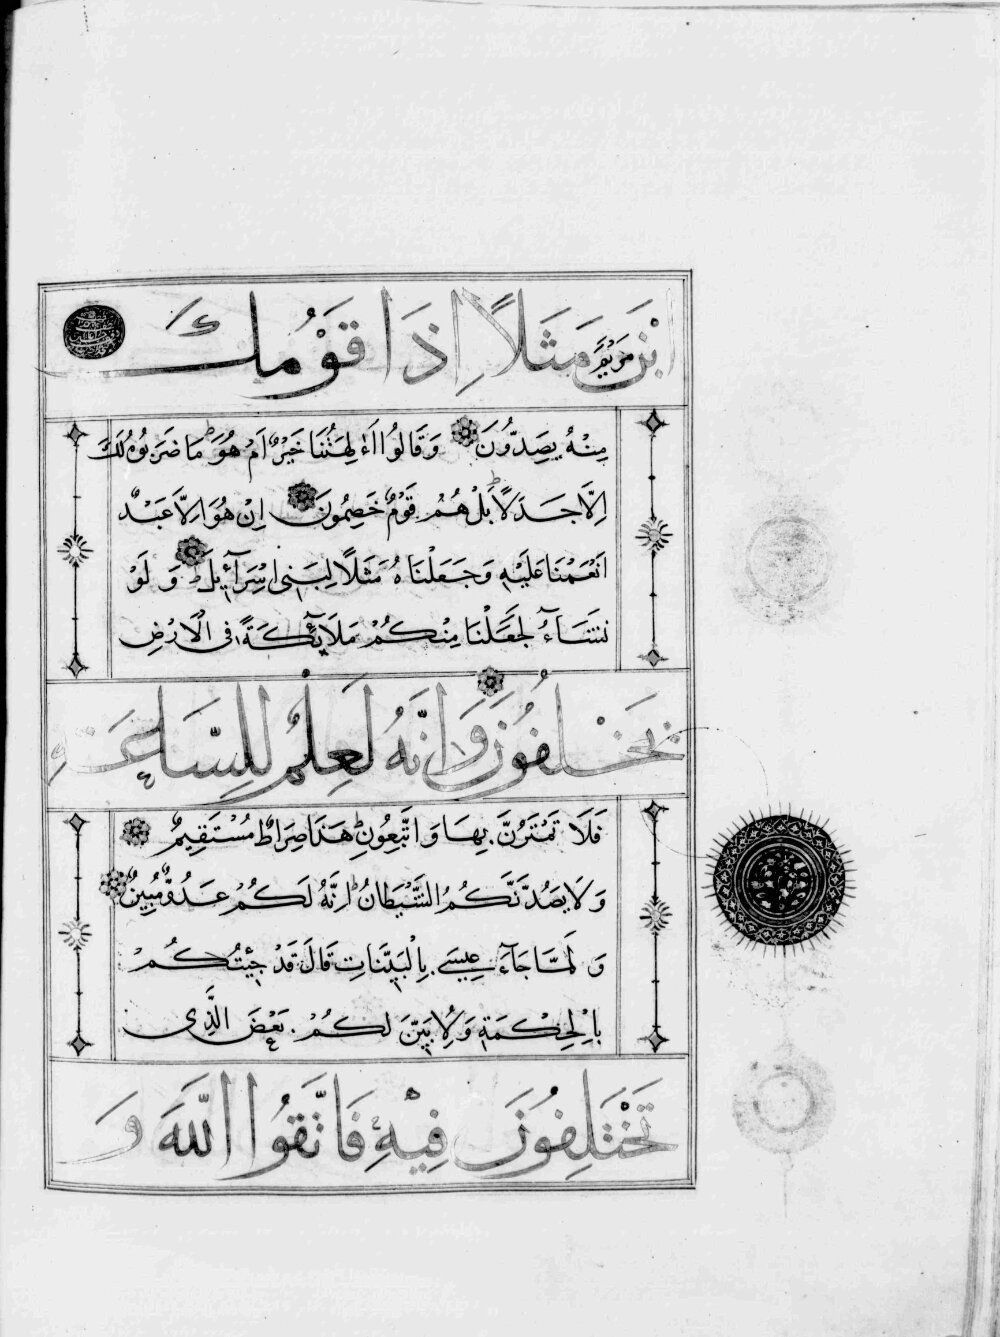 ابْنُ مَرْيَمَ مَثَلًا اِذَا قَوْمُكَ
مِنْهُ يَصِدُّونَ وَقَالُوا ءَاٰلِهَتُنَا خَيْرٌ اَمْ هُوَ مَا ضَرَبُوهُ لَكَ
اِلَّا جَدَلًا بَلْ هُمْ قَوْمٌ خَصِمُونَ اِنْ هُوَ اِلَّا عَبْدٌ
اَنْعَمْنَا عَلَيْهِ وَجَعَلْنَاهُ مَثَلًا لِبَنِى اِسْرَآئِيلَ وَلَوْ
نَشَآءُ لَجَعَلْنَا مِنْكُمْ مَلَآئِكَةً فِى الْاَرْضِ
يَخْلُفُونَ وَاِنَّهُ لَعِلْمٌ لِلسَّاعَةِ
فَلَا تَمْتَرُنَّ بِهَا وَاتَّبِعُونِ هَذَا صِرَاطٌ مُسْتَقِيمٌ
وَلَا يَصُدَّنَّكُمُ الشَّيْطَانُ اِنَّهُ لَكُمْ عَدُوٌّ مُبِينٌ
وَلَمَّا جَآءَ عِيسَى بِالْبَيِّنَاتِ قَالَ قَدْ جِئْتُكُمْ
بِالْحِكْمَةِ وَلِاُبَيِّنَ لَكُمْ بَعْضَ الَّذِى
تَخْتَلِفُونَ فِيْهِ فَاتَّقُوا اللَّهَ وَ